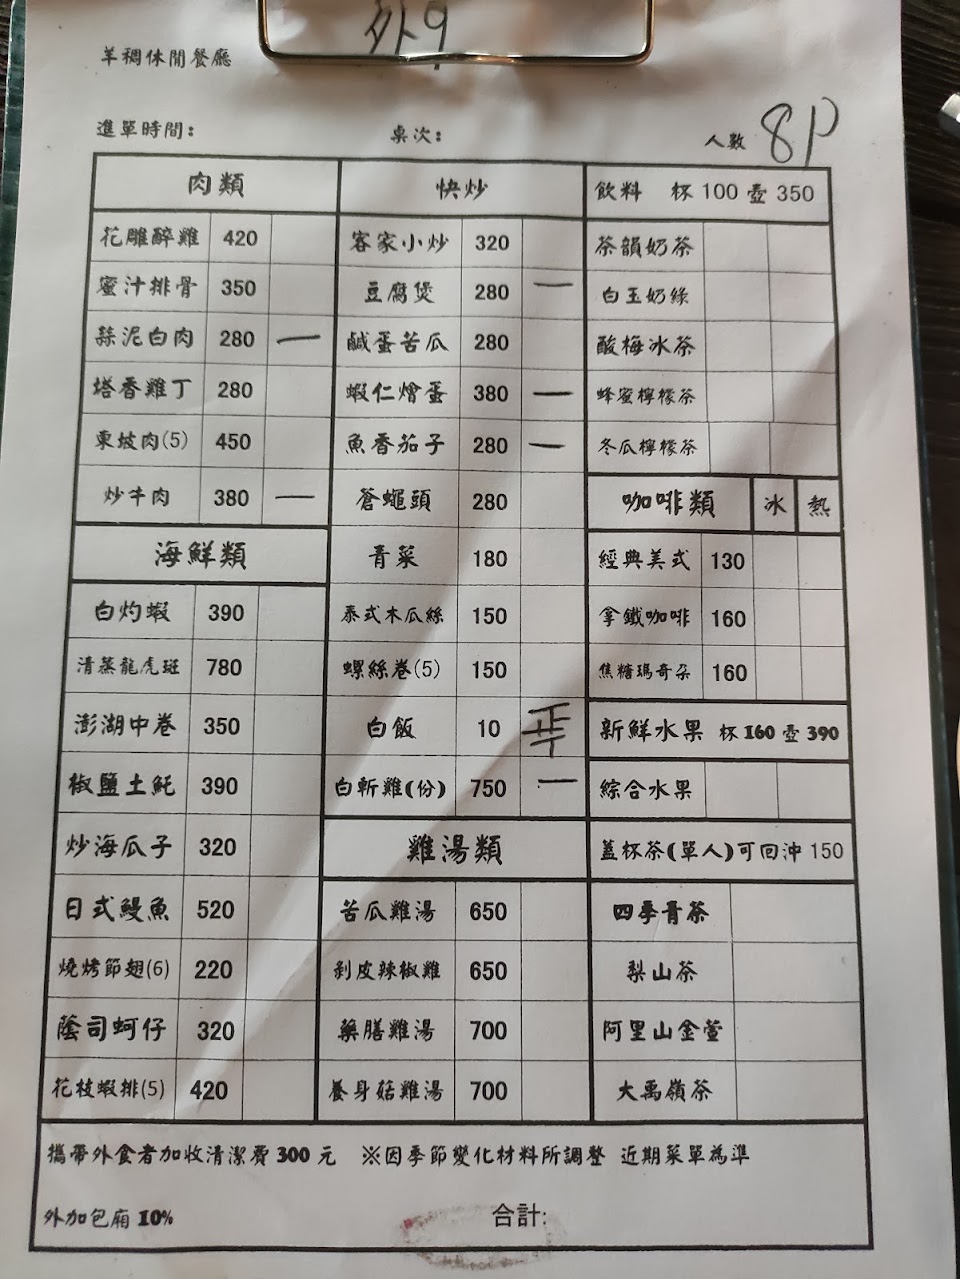 外9
羊稠休閒餐廳
進單時間: 桌次: 人數 8P
肉類
花雕醉雞 420
蜜汁排骨 350
蒜泥白肉 280 一
塔香雞丁 280
東坡肉(5) 450
炒牛肉 380 一
海鮮類
白灼蝦 390
清蒸龍虎斑 780
澎湖中卷 350
椒鹽土魠 390
炒海瓜子 320
日式鰻魚 520
燒烤節翅(6) 220
蔭司蚵仔 320
花枝蝦排(5) 420
快炒
客家小炒 320
豆腐煲 280 一
鹹蛋苦瓜 280
蝦仁燴蛋 380 一
魚香茄子 280 一
蒼蠅頭 280
青菜 180
泰式木瓜絲 150
螺絲卷(5) 150
白飯 10
白斬雞(份) 750 一
雞湯類
苦瓜雞湯 650
剝皮辣椒雞 650
藥膳雞湯 700
養身菇雞湯 700
飲料 杯 100 壺 350
茶韻奶茶
白玉奶綠
酸梅冰茶
蜂蜜檸檬茶
冬瓜檸檬茶
咖啡類 冰 熱
經典美式 130
拿鐵咖啡 160
焦糖瑪奇朵 160
新鮮水果 杯 160 壺 390
綜合水果
蓋杯茶(單人)可回沖 150
四季青茶
梨山茶
阿里山金萱
大禹嶺茶
攜帶外食者加收清潔費 300 元 ※因季節變化材料所調整 近期菜單為準
外加包廂 10% 合計: